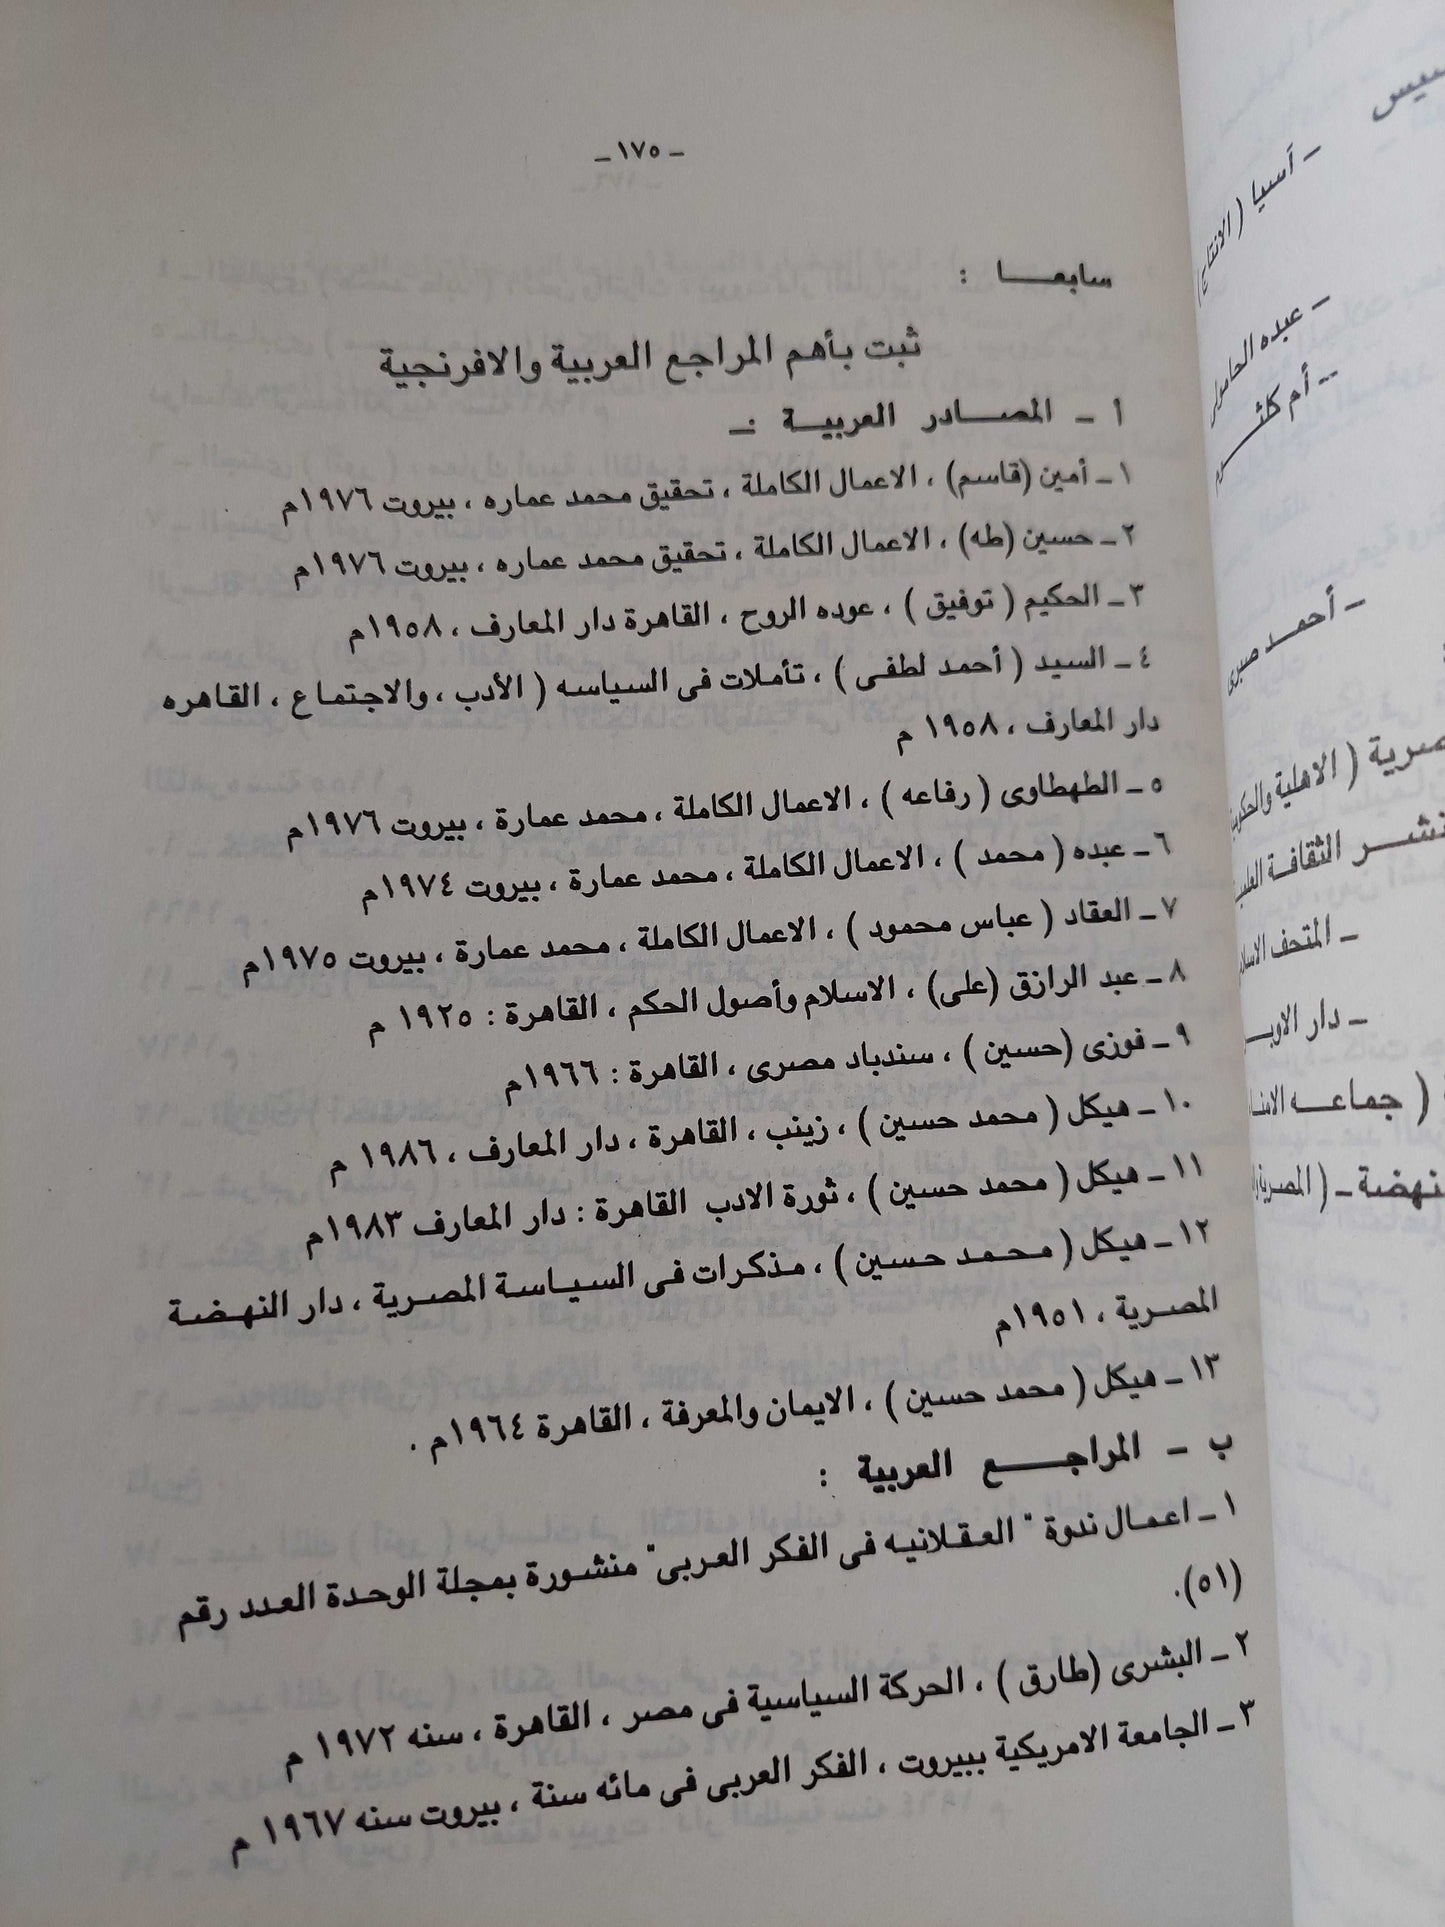 ـ ١٧٥ ـ
سابعـــا :
ثبت بأهم المراجع العربية والافرنجية
أ ـ المصـــادر العربيـــة :ـ
١ ـ أمين (قاسم) ، الاعمال الكاملة ، تحقيق محمد عماره ، بيروت ١٩٧٦م
٢ ـ حسين (طه) ، الاعمال الكاملة ، تحقيق محمد عماره ، بيروت ١٩٧٦م
٣ ـ الحكيم ( توفيق ) ، عوده الروح ، القاهرة دار المعارف ، ١٩٥٨م
٤ ـ السيد ( أحمد لطفى ) ، تأملات فى السياسه ( الأدب ، والاجتماع ، القاهره
دار المعارف ، ١٩٥٨ م
٥ ـ الطهطاوى ( رفاعه ) ، الاعمال الكاملة ، محمد عمارة ، بيروت ١٩٧٦م
٦ ـ عبده ( محمد ) ، الاعمال الكاملة ، محمد عمارة ، بيروت ١٩٧٤م
٧ ـ العقاد ( عباس محمود ) ، الاعمال الكاملة ، محمد عمارة ، بيروت ١٩٧٥م
٨ ـ عبد الرازق (على) ، الاسلام وأصول الحكم ، القاهرة : ١٩٢٥ م
٩ ـ فوزى (حسين ) ، سندباد مصرى ، القاهرة : ١٩٦٦م
١٠ ـ هيكل ( محمد حسين ) ، زينب ، القاهرة ، دار المعارف ، ١٩٨٦ م
١١ ـ هيكل ( محمد حسين ) ، ثورة الادب القاهرة : دار المعارف ١٩٨٣م
١٢ ـ هيكل ( محمد حسين ) ، مذكرات فى السياسة المصرية ، دار النهضة
المصرية ، ١٩٥١م
١٣ ـ هيكل ( محمد حسين ) ، الايمان والمعرفة ، القاهرة ١٩٦٤م .
ب ـ المراجـــع العربية :
١ ـ اعمال ندوة " العقلانيه فى الفكر العربى" منشورة بمجلة الوحدة العدد رقم
(٥١).
٢ ـ البشرى (طارق ) ، الحركة السياسية فى مصر ، القاهرة ، سنه ١٩٧٢ م
٣ ـ الجامعة الامريكية ببيروت ، الفكر العربى فى مائه سنة ، بيروت سنه ١٩٦٧ م
ـ آسيا ( الانتاج)
ـ عبده الحامولى
ـ أم كلثـــوم
ـ أحمـد صبرى
( الاهلية
الثقافة
ـ المتحف
ـ دار
( جماعـه